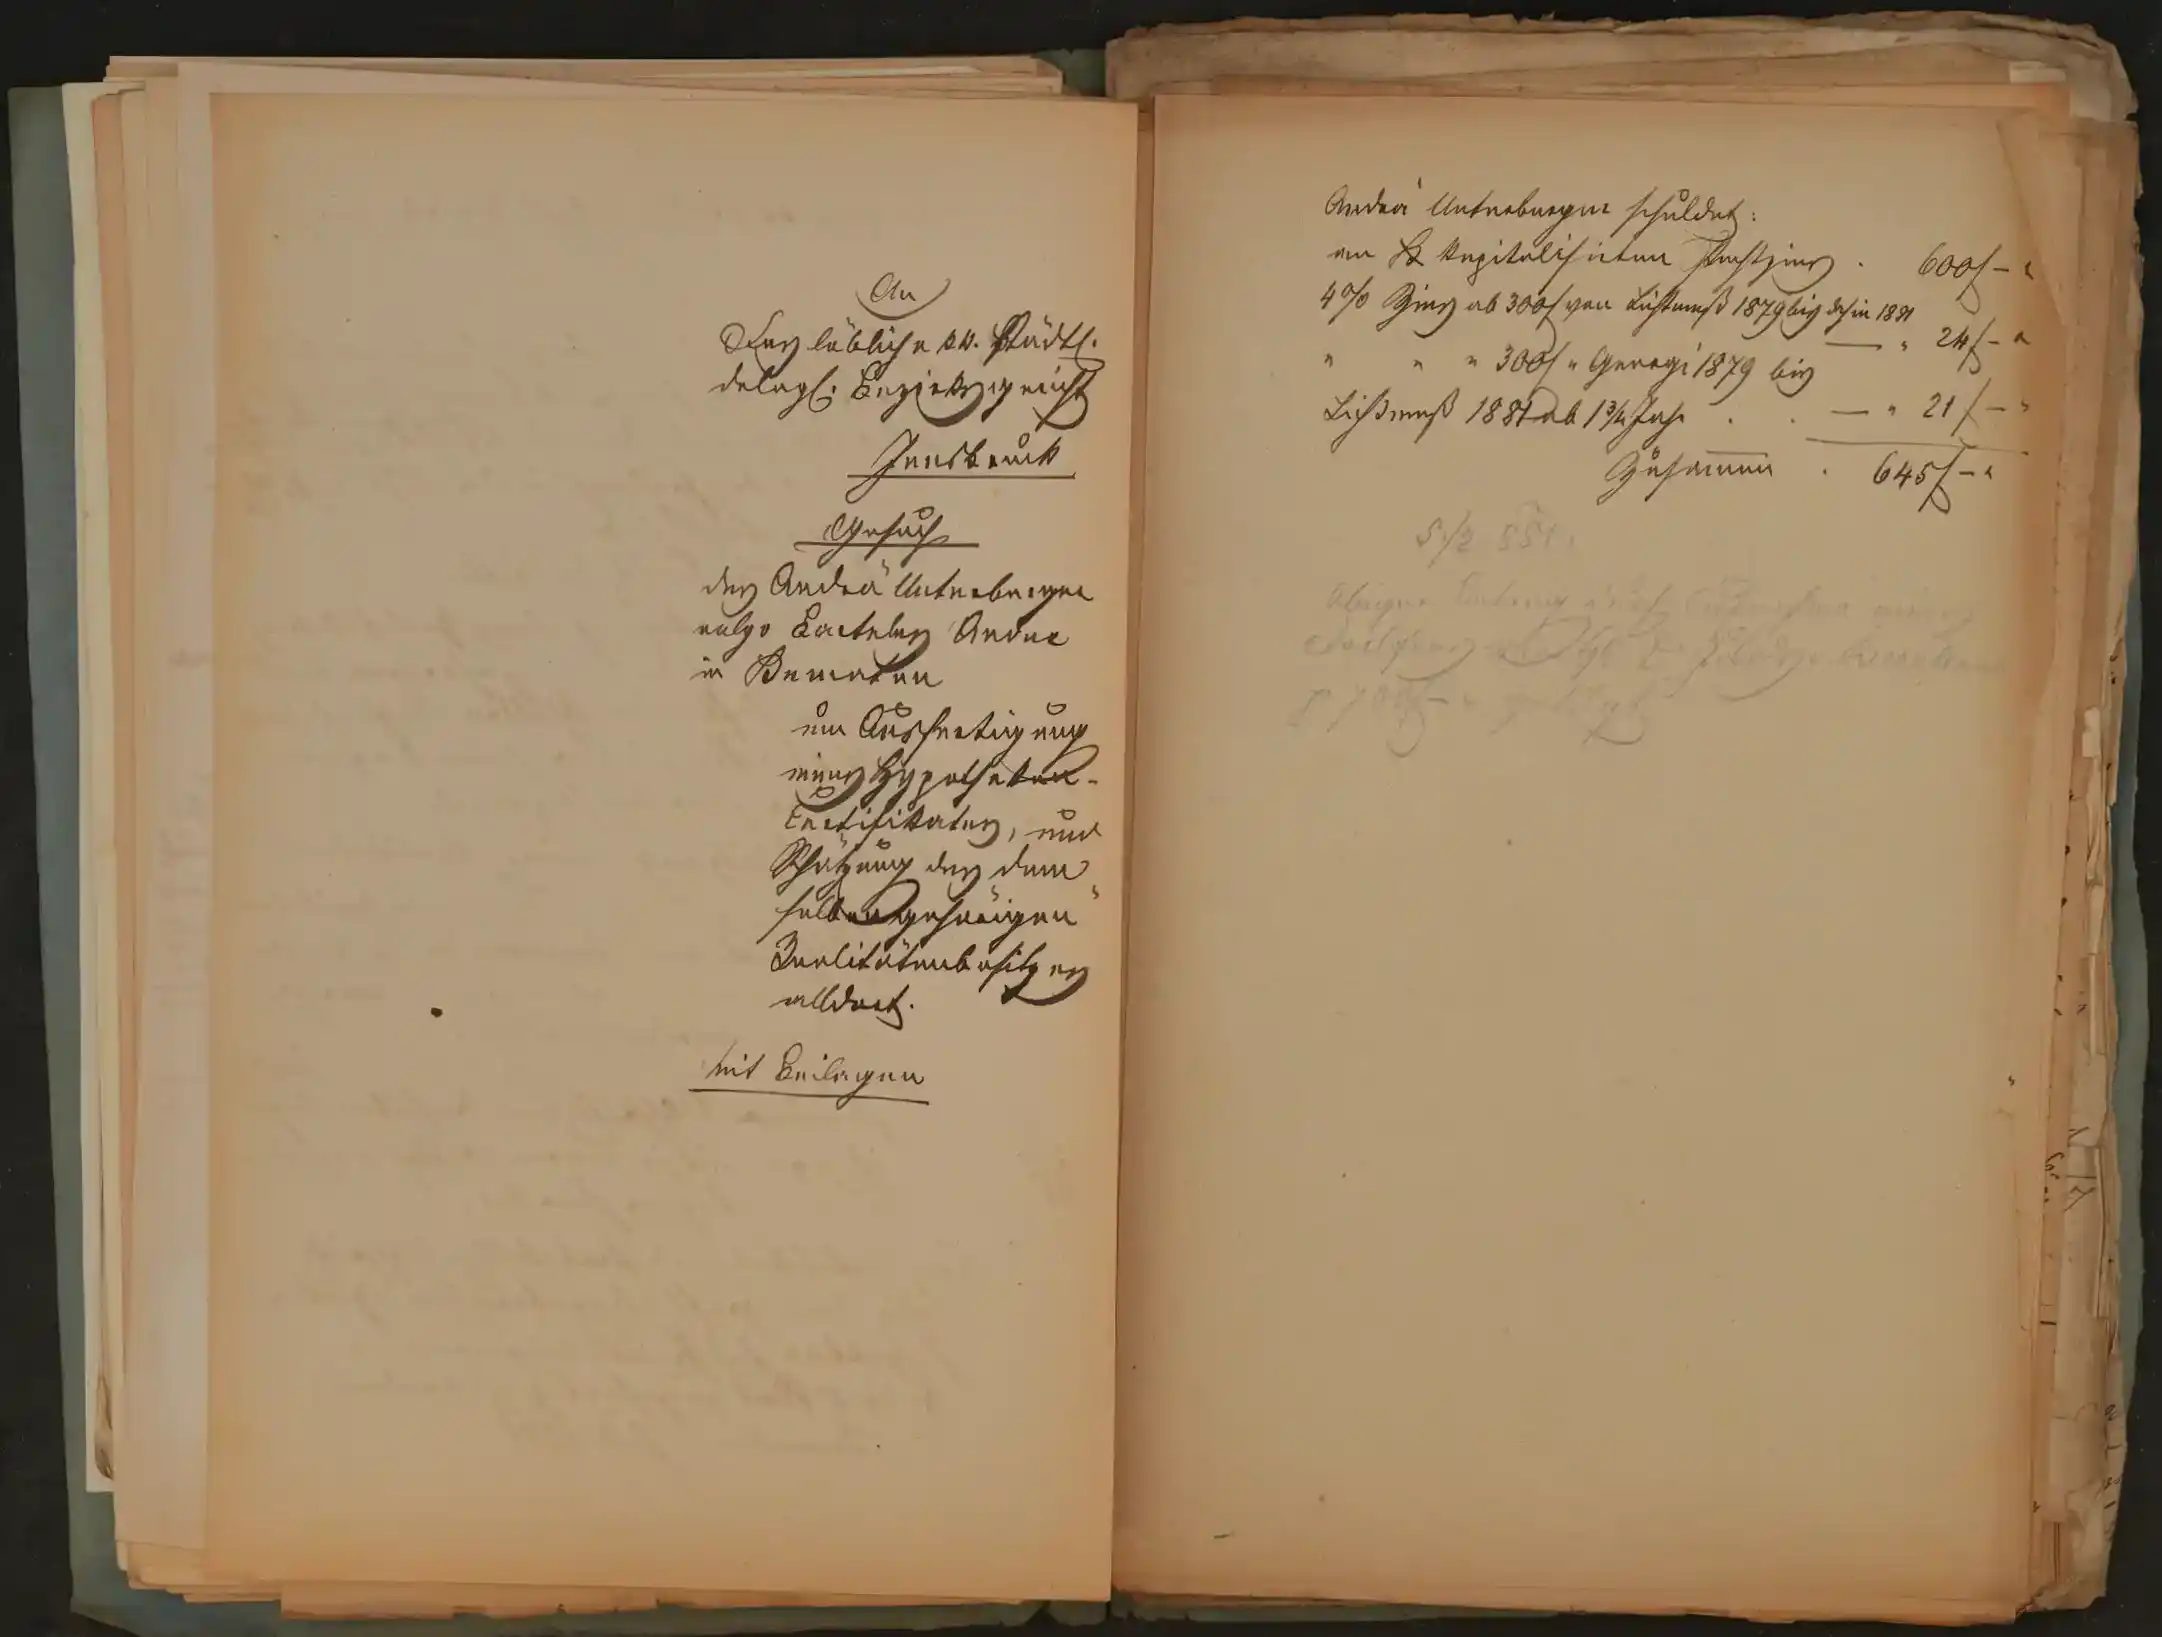 An
Das löbliche k.k. städtl.
delegl. Bezirksgericht
Innsbruck
Gesuch
des Andrä Unterberger
vulgo Bartelns Andrä
in Kematen
um Ausfertigung
eines Hypotheken-
Certifikates, und
Schätzung des dem
selben gehörigen
Realitätenbesitzes
alldort.
mit Beilagen
Andrä Unterberger schuldet:
an kapitalisirten Pachtzins . 600f — "
4% Zins ab 300f von Lichtmeß 1879 bis dahin 1881
— " 24f — "
" " " 300f " Georgi 1879 bis
Lichtmeß 1881 ab 1 3/4 Jahr . . — " 21f — "
Zusammen . 645f — "
5/2 881.